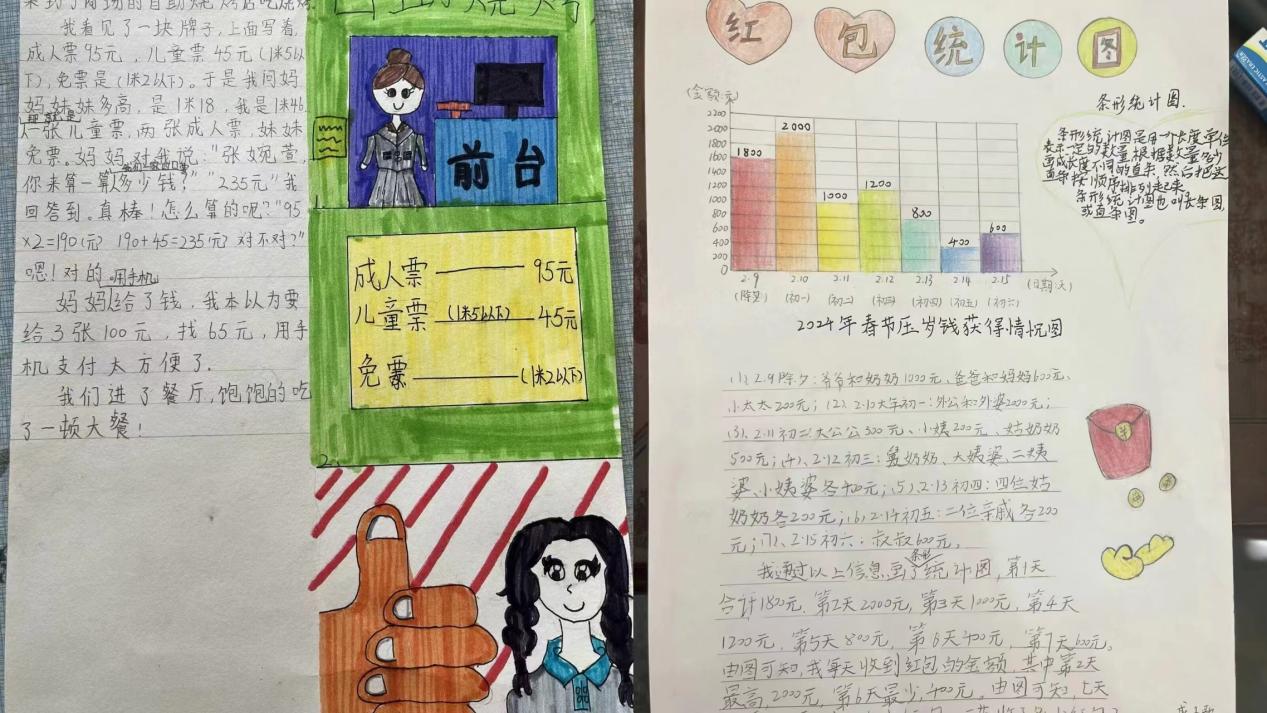 来到了商场的自助烧烤店吃烧烤
我看见了一块牌子,上面写着,
成人票95元,儿童票45元(1米5以
下),免票是(1米2以下)。于是我问妈
妈妹妹多高,是1米18,我是1米46,
一张儿童票,两张成人票,妹妹
免票。妈妈对我说:"张婉萱,
你来算一算多少钱?""235元"我
回答到。真棒!怎么算的呢?"95
×2=190(元) 190+45=235(元)对不对?"
嗯!对的
用手机
妈妈给了钱,我本以为要
给3张100元,找65元,用手
机支付太方便了.
我们进了餐厅,饱饱的吃
了一顿大餐!
前台
成人票——95元
儿童票(1米5以下)——45元
免票——(1米2以下)
2.
红包统计图
(金额:元)
2200
2000
1800
1600
1400
1200
1000
800
600
400
200
0
1800
2000
1000
1200
800
400
600
2.9 2.10 2.11 2.12 2.13 2.14 2.15
(日期:天)
(除夕) (初一) (初二) (初三) (初四) (初五) (初六)
2024年春节压岁钱获得情况图
条形统计图.
条形统计图是用一个长度单位
表示一定的数量,根据数量多少
画成长度不同的直条,然后把这
直条按顺序排列起来.
条形统计图也叫长条图
或直条图。
(1)、2.9除夕:爷爷和奶奶1000元、爸爸和妈妈600元、
小太太200元;(2)、2.10大年初一:外公和外婆2000元;
(3)、2.11初二:大公公300元、小姨200元、姑奶奶
500元;(4)、2.12初三:舅奶奶、大姨婆、二姨
婆、小姨婆各400元;(5)、2.13初四:四位姑
奶奶各200元;(6)、2.14初五:二位亲戚各200
元;(7)、2.15初六:叔叔600元.
条形
我通过以上信息画了统计图,第1天
合计1800元.第2天2000元,第3天1000元,第4天
1200元,第5天800元,第6天400元,第7天600元。
由图可知,我每天收到红包的金额,其中第2天
最高,2000元,第6天最少,400元。由图可知,七天